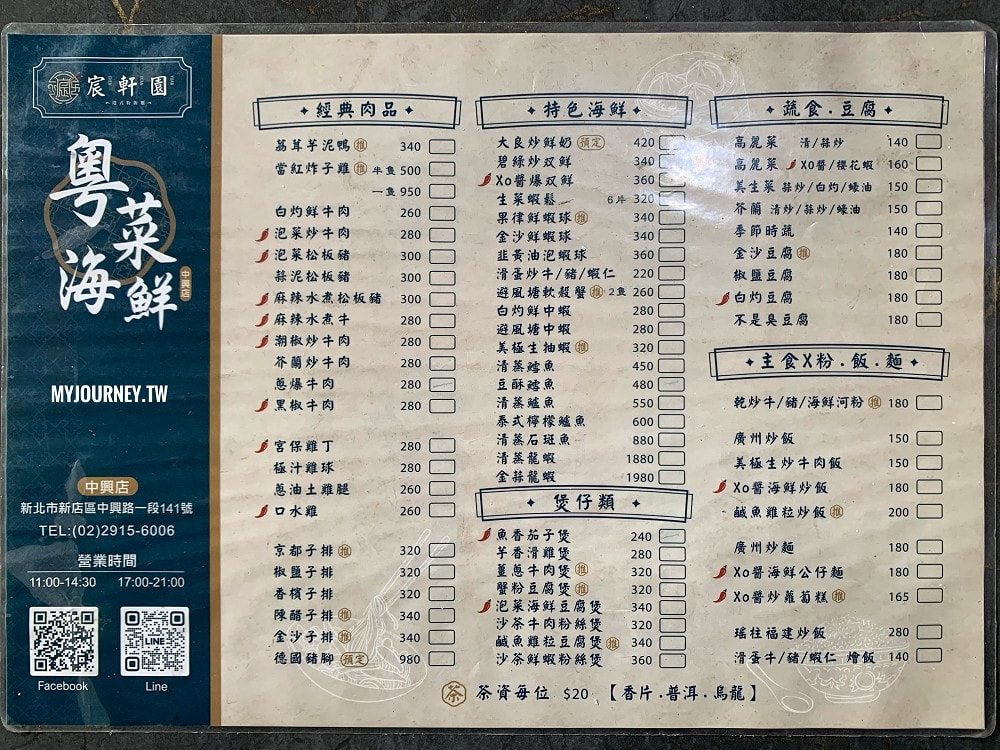 宸軒園
港式粉飯麵
粵菜海鮮
中興店
MYJOURNEY.TW
中興店
新北市新店區中興路一段141號
TEL:(02)2915-6006
營業時間
11:00-14:30 17:00-21:00
LINE
Facebook Line
經典肉品
荔茸芋泥鴨 推 340
當紅炸子雞 推 半隻 500
一隻 950
白灼鮮牛肉 260
泡菜炒牛肉 280
泡菜松板豬 300
蒜泥松板豬 300
麻辣水煮松板豬 300
麻辣水煮牛 280
潮椒炒牛肉 280
芥蘭炒牛肉 280
蔥爆牛肉 280
黑椒牛肉 280
宮保雞丁 280
極汁雞球 280
蔥油土雞腿 260
口水雞 260
京都子排 推 320
椒鹽子排 320
香檳子排 320
陳醋子排 推 340
金沙子排 推 340
德國豬腳 預定 980
特色海鮮
大良炒鮮奶 預定 420
碧綠炒双鮮 340
XO醬爆双鮮 360
生菜蝦鬆 6片 320
果律鮮蝦球 推 340
金沙鮮蝦球 340
韭黃油泡蝦球 360
滑蛋炒牛/豬/蝦仁 220
避風塘軟殼蟹 推 2隻 260
白灼鮮中蝦 280
避風塘中蝦 280
美極生抽蝦 推 320
清蒸鱈魚 450
豆酥鱈魚 480
清蒸鱸魚 550
泰式檸檬鱸魚 600
清蒸石斑魚 880
清蒸龍蝦 1880
金蒜龍蝦 1980
煲仔類
魚香茄子煲 240
芋香滑雞煲 280
薑蔥牛肉煲 推 320
蟹粉豆腐煲 推 320
泡菜海鮮豆腐煲 340
沙茶牛肉粉絲煲 320
鹹魚雞粒豆腐煲 推 340
沙茶鮮蝦粉絲煲 360
蔬食.豆腐
高麗菜 清/蒜炒 140
高麗菜 XO醬/櫻花蝦 160
美生菜 蒜炒/白灼/蠔油 150
芥蘭 清炒/蒜炒/蠔油 150
季節時蔬 140
金沙豆腐 推 180
椒鹽豆腐 180
白灼豆腐 180
不是臭豆腐 180
主食X粉.飯.麵
乾炒牛/豬/海鮮河粉 推 180
廣州炒飯 150
美極生炒牛肉飯 150
XO醬海鮮炒飯 180
鹹魚雞粒炒飯 推 200
廣州炒麵 180
XO醬海鮮公仔麵 180
XO醬炒蘿蔔糕 推 165
瑤柱福建炒飯 280
滑蛋牛/豬/蝦仁 燴飯 140
茶 茶資每位 $20 【香片.普洱.烏龍】